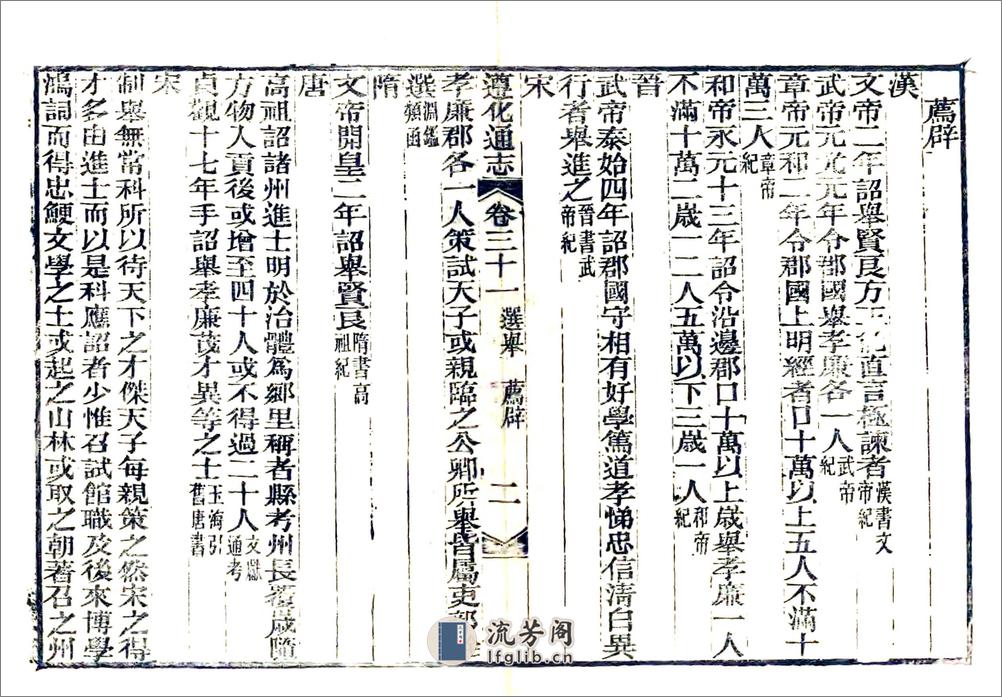 薦辟
漢
文帝二年詔舉賢良方正能直言極諫者漢書文帝紀
武帝元光元年令郡國舉孝廉各一人武帝紀
章帝元和二年令郡國上明經者口十萬以上五人不滿十
萬三人章帝紀
和帝永元十三年詔令沿邊郡口十萬以上歲舉孝廉一人
不滿十萬二歲一人五萬以下三歲一人和帝紀
晉
武帝泰始四年詔郡國守相有好學篤道孝悌忠信清白異
行者舉進之晉書武帝紀
宋
遵化通志 卷三十一 選舉 薦辟 二
孝廉郡各一人策試天子或親臨之公卿所舉皆屬吏部
選淵鑑類函
隋
文帝開皇二年詔舉賢良隋書高祖紀
唐
高祖詔諸州進士明於治體為鄉里稱者縣考州長覆歲隨
方物入貢後或增至四十人或不得過二十人文獻通考
貞觀十七年手詔舉孝廉茂才異等之士玉海引舊唐書
宋
制舉無常科所以待天下之才傑天子每親策之然宋之得
才多由進士而以是科應詔者少惟召試館職及後來博學
鴻詞而得忠鯁文學之士或起之山林或取之朝著召之州
流芳阁
lfglib.cn